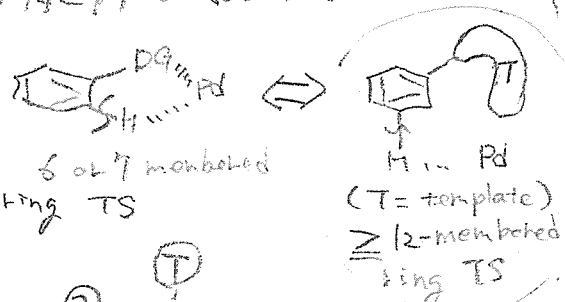 DG
Pd
H
6 or 7 membered
ring TS
T
H ... Pd
(T = template)
≥ 12-membered
ring TS
T